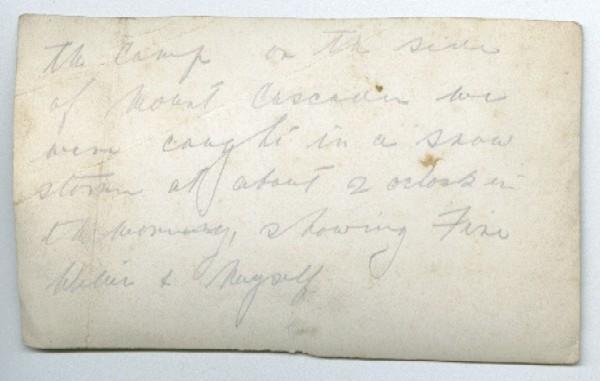 the Camp on the side
of Mount Cascaden we
were caught in a snow
storm at about 2 oclock in
the morning, showing Fire
& Myself